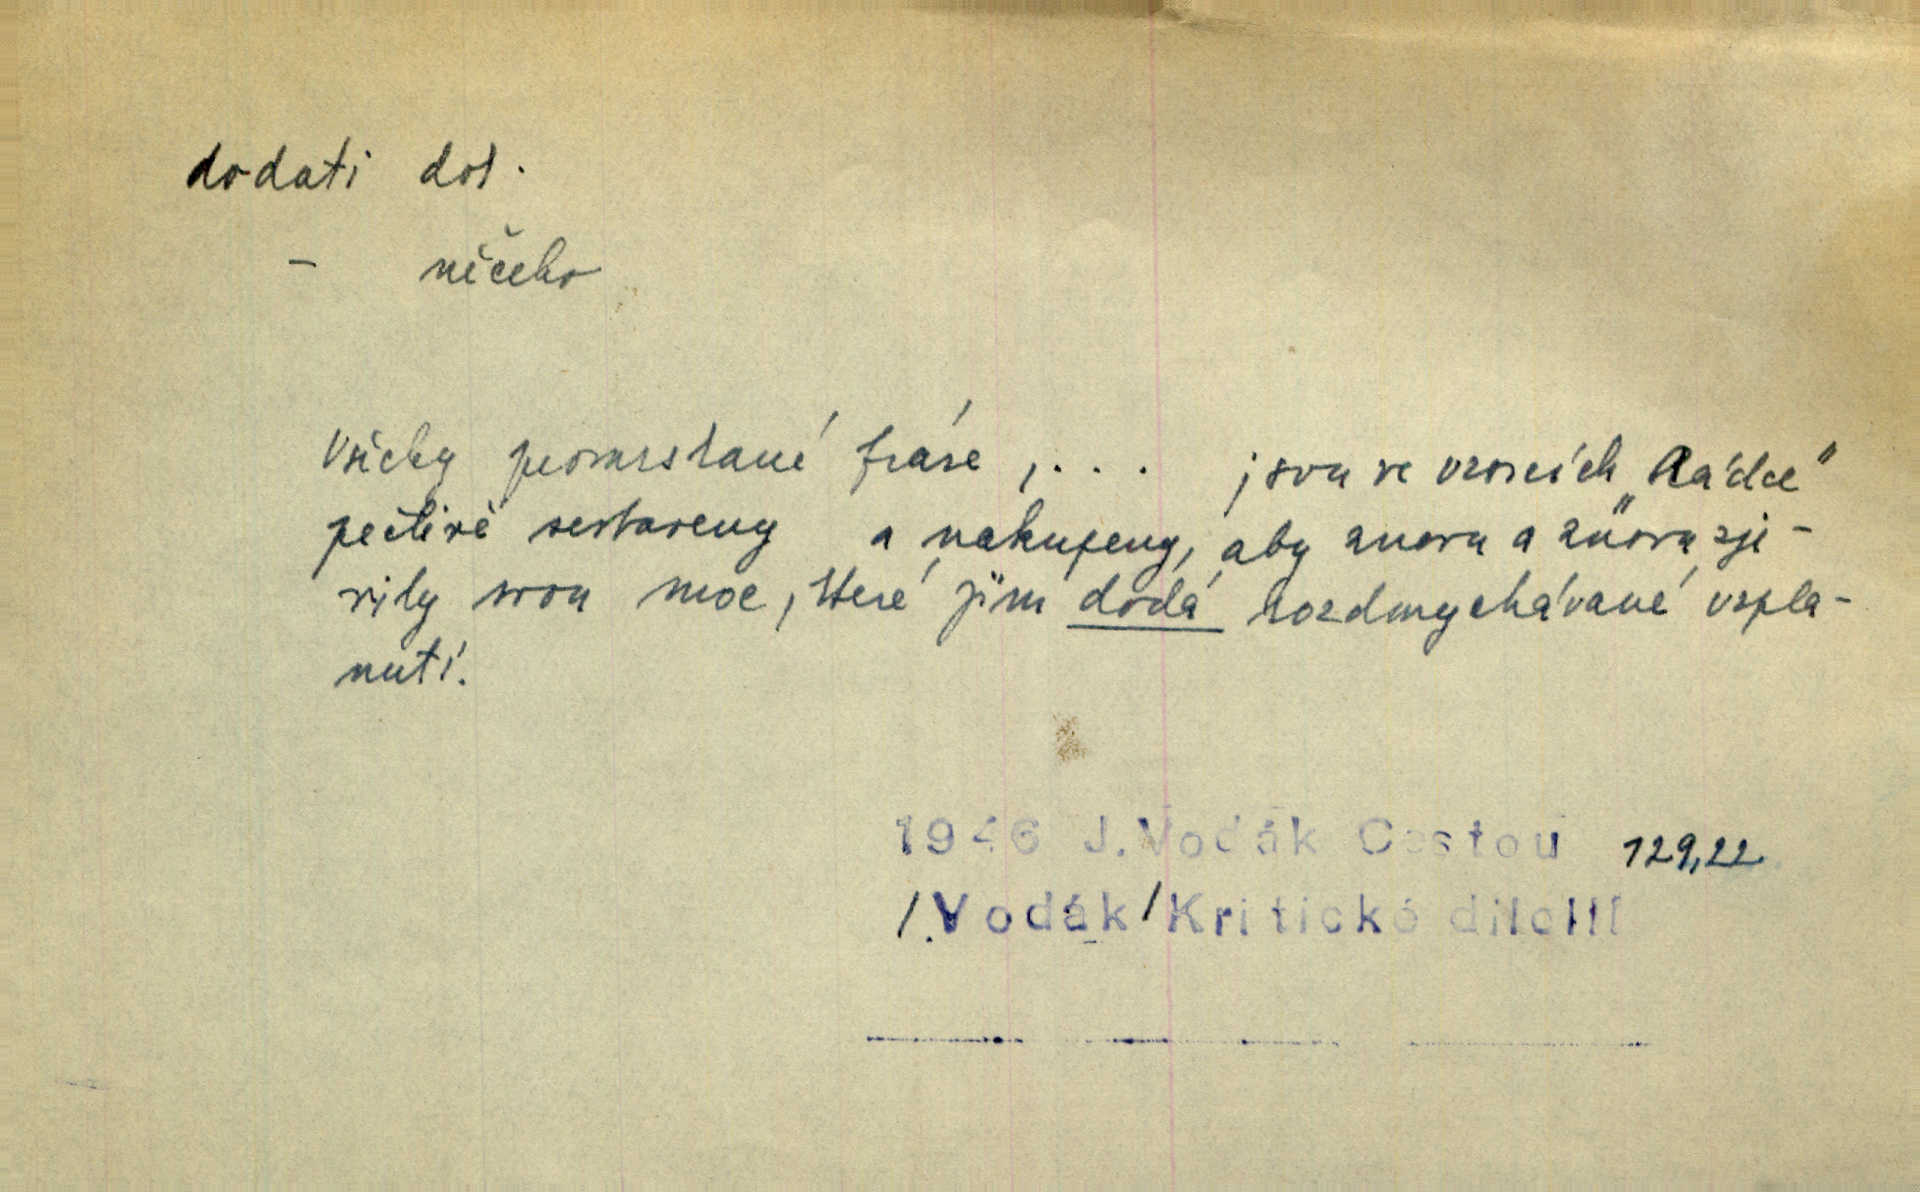 dodati dok.
– něčeho
Všicky promrskané fráse, . . . jsou ve vzorcích „Rádce"
pečlivě sestaveny a nakupeny, aby znovu a znovu zje-
vily svou moc, které jim dodá rozdmychávané vzpla-
nutí.
1946 J.Vodák Cestou 129,22
/.Vodák/Kritické díloIII